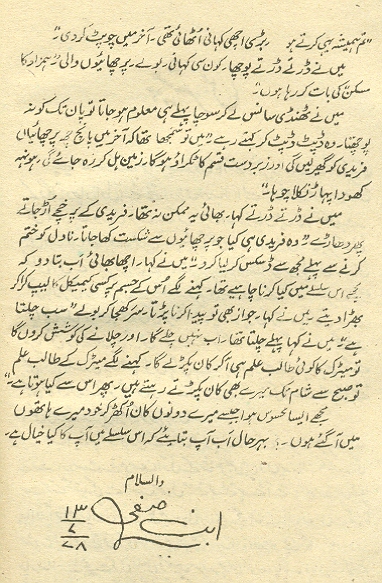 "تم ہمیشہ یہی کرتے ہو بڑی اچھی کہانی اُٹھائی تھی۔ آخر میں چوپٹ کردی"
میں نے ڈرتے ڈرتے پوچھا۔ کون سی کہانی، بولے پرچھائیوں والی "ہزار کا
مسکن کی بات کر رہا ہوں"۔
میں نے ٹھنڈی سانس لے کر سوچا پہلے ہی معلوم ہو جاتا تو پان تک کو نہ
پوچھتا۔ وہ ڈپٹ ڈپٹ کر کہتے رہے "میں تو سمجھا تھا کہ آخر میں پانچ چھ پرچھائیاں
فریدی کو گھیر لیں گی اور زبردست قسم کا ٹکراؤ ہوگا۔ زمین ہل کر رہ جائے گی، ہونہہ
کھودا پہاڑ نکلا چوہا"۔
میں نے ڈرتے ڈرتے کہا۔ بھائی یہ ممکن نہ تھا۔ فریدی کے پرخچے اڑ جاتے
پھر دھاڑے "وہ فریدی ہی کیا جو پرچھائیوں سے شکست کھا جاتا۔ ناول کو ختم
کرنے سے پہلے مجھ سے ڈسکس کر لیا کرو" میں نے کہا۔ اچھا بھائی اب بتا دو کہ
مجھے اس سلسلے میں کیا کرنا چاہیے تھا۔ کہنے لگے اس کے جسم پر کسی کیمیکل کا لیپ کرا کر
بھڑا دیتے۔ میں نے کہا۔ جواز بھی تو پیدا کرنا پڑتا۔ سر کھجا کر بولے "سب چلتا
ہے" میں نے کہا پہلے چلتا تھا۔ اب نہیں چلے گا۔ اور چلانے کی کوشش کروں گا
تو میٹرک کا کوئی طالب علم ہی آ کر کان پکڑے گا۔ کہنے لگے میٹرک کے طالب علم
تو صبح سے شام تک میرے بھی کان پکڑتے رہتے ہیں۔ پھر اس سے کیا ہوتا ہے"۔
مجھے ایسا محسوس ہوا جیسے میرے دونوں کان اُکھڑ کر خود میرے ہاتھوں
میں آ گئے ہوں۔ بہرحال اب آپ بتائیے کہ اس سلسلے میں آپ کا کیا خیال ہے۔
والسلام
ابن صفی
۱۳
۷
۷۸